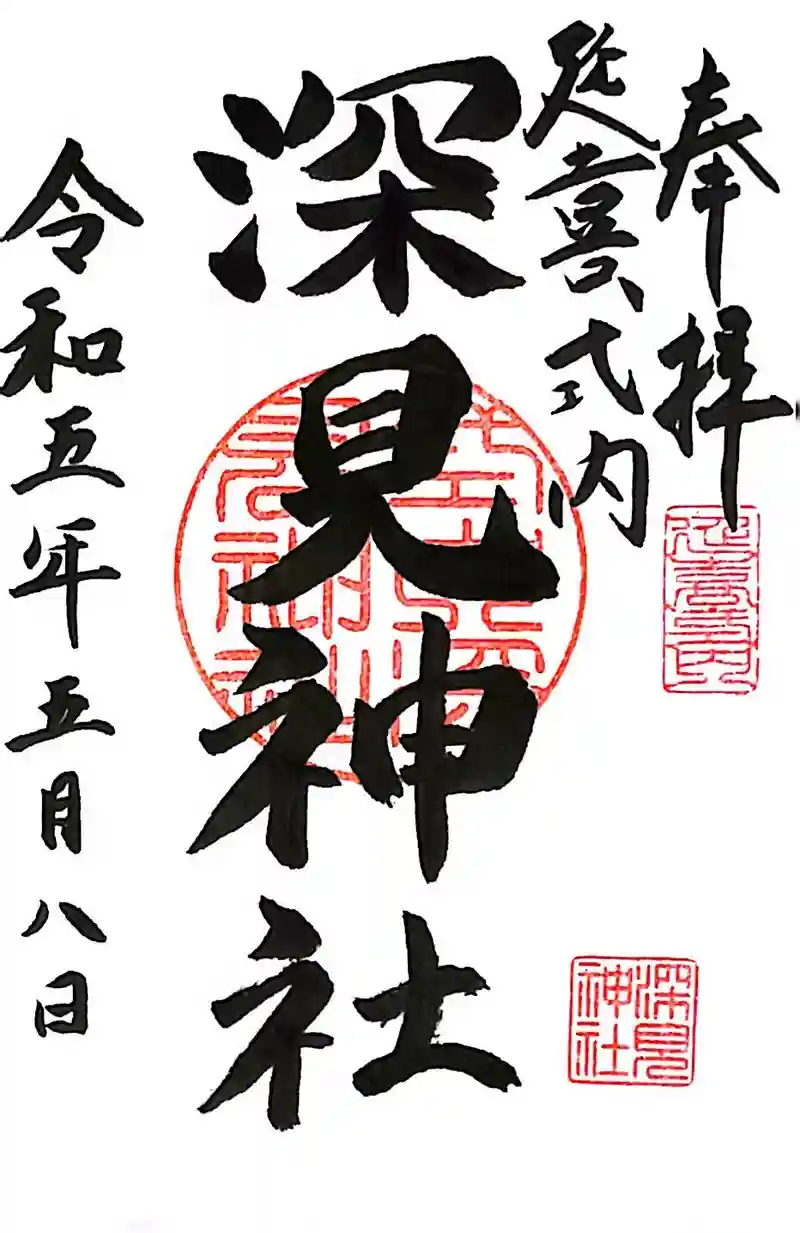 奉拝
延喜式内
深見神社
令和五年五月八日
延喜式内
深見
神社